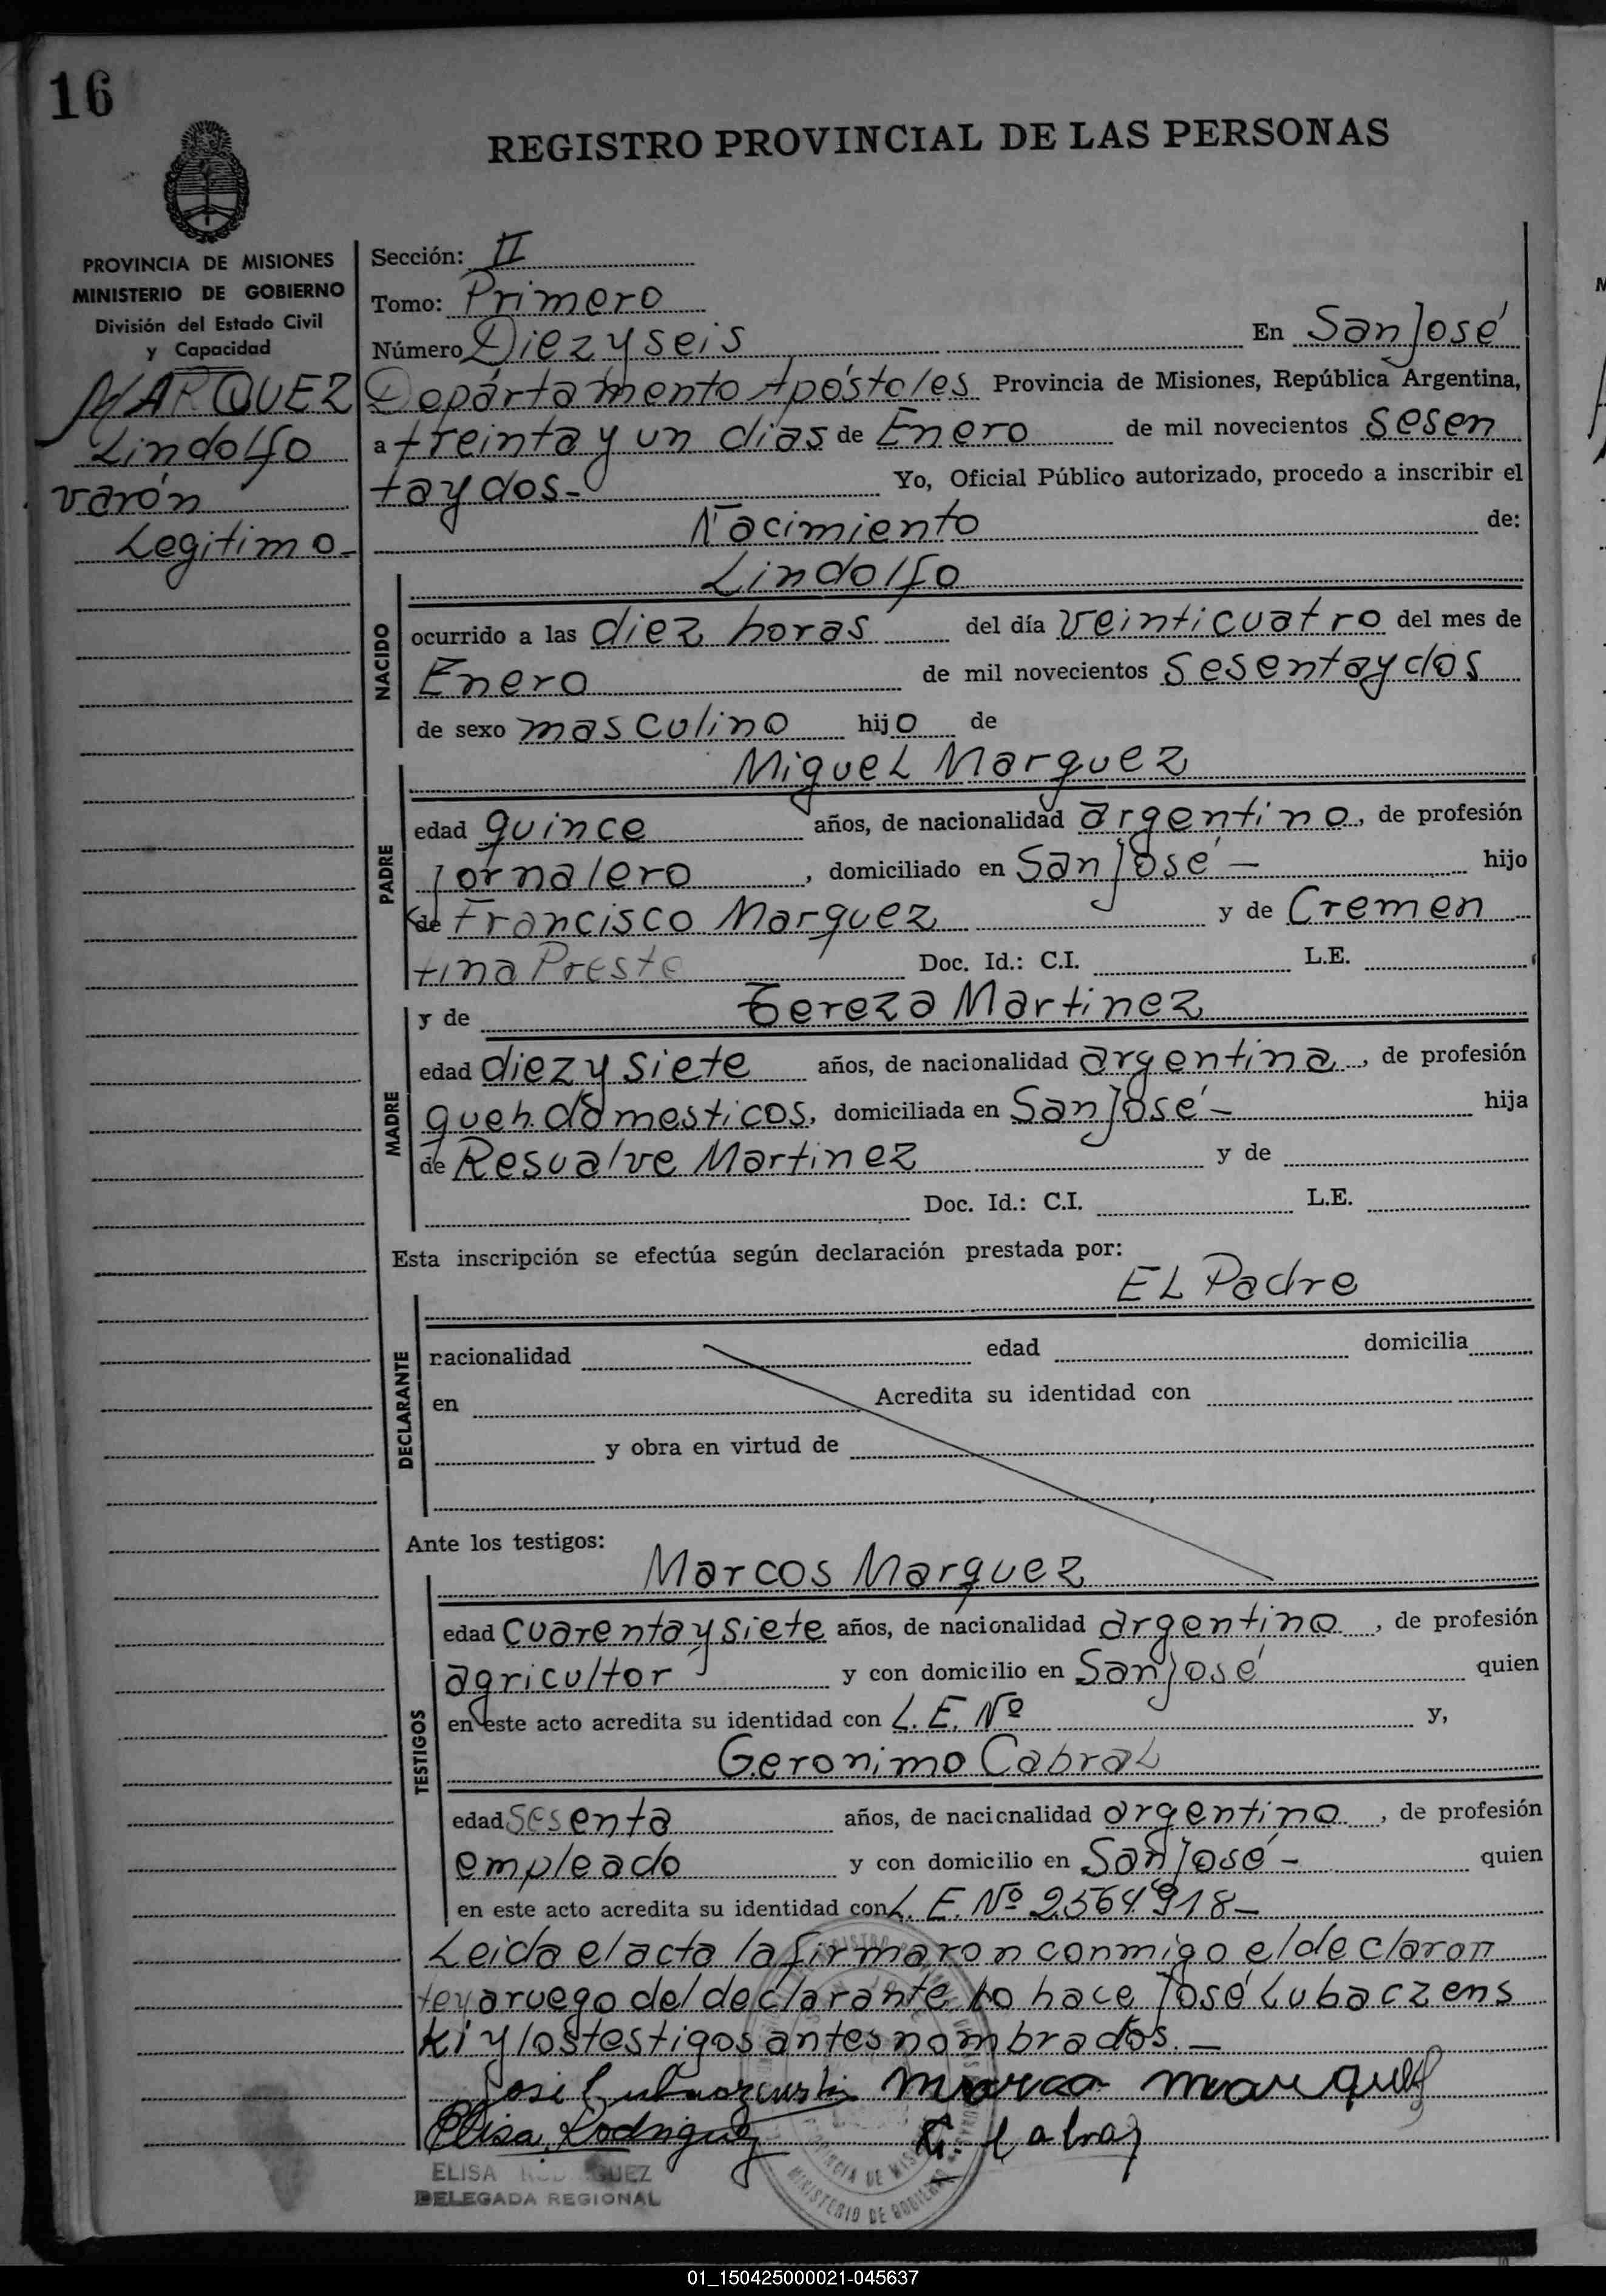 16
REGISTRO PROVINCIAL DE LAS PERSONAS
PROVINCIA DE MISIONES
MINISTERIO DE GOBIERNO
División del Estado Civil
y Capacidad
MARQUEZ
Lindolfo
varón
Legitimo-
Sección: II
Tomo: Primero
Número Diez y seis En San José
Departamento Apóstoles Provincia de Misiones, República Argentina,
a treinta y un dias de Enero de mil novecientos sesen
ta y dos- Yo, Oficial Público autorizado, procedo a inscribir el
Nacimiento de:
Lindolfo
NACIDO
ocurrido a las diez horas del día veinticuatro del mes de
Enero de mil novecientos sesenta y dos
de sexo masculino hijo de
Miguel Marquez
PADRE
edad quince años, de nacionalidad argentino, de profesión
jornalero, domiciliado en San José - hijo
de Francisco Marquez y de Cremen
tina Preste Doc. Id.: C.I. L.E.
MADRE
y de Tereza Martinez
edad diez y siete años, de nacionalidad argentina, de profesión
queh. domesticos, domiciliada en San José - hija
de Resualve Martinez y de
Doc. Id.: C.I. L.E.
Esta inscripción se efectúa según declaración prestada por:
EL Padre
DECLARANTE
nacionalidad edad domicilia
en Acredita su identidad con
y obra en virtud de
Ante los testigos:
Marcos Marquez
TESTIGOS
edad cuarenta y siete años, de nacionalidad argentino, de profesión
agricultor y con domicilio en San José quien
en este acto acredita su identidad con L. E. Nº y,
Geronimo Cabral
edad sesenta años, de nacionalidad argentino, de profesión
empleado y con domicilio en San José - quien
en este acto acredita su identidad con L. E. Nº 2.564.918-
Leida el acta la firmaron conmigo el declaran
te y a ruego del declarante lo hace José Lubaczens
ki y los testigos antes nombrados. -
José Marco Marquez
Elisa Rodriguez G. Cabral
ELISA RODRIGUEZ
DELEGADA REGIONAL
PROVINCIA DE MISIONES
MINISTERIO DE GOBIERNO
01_150425000021-045637